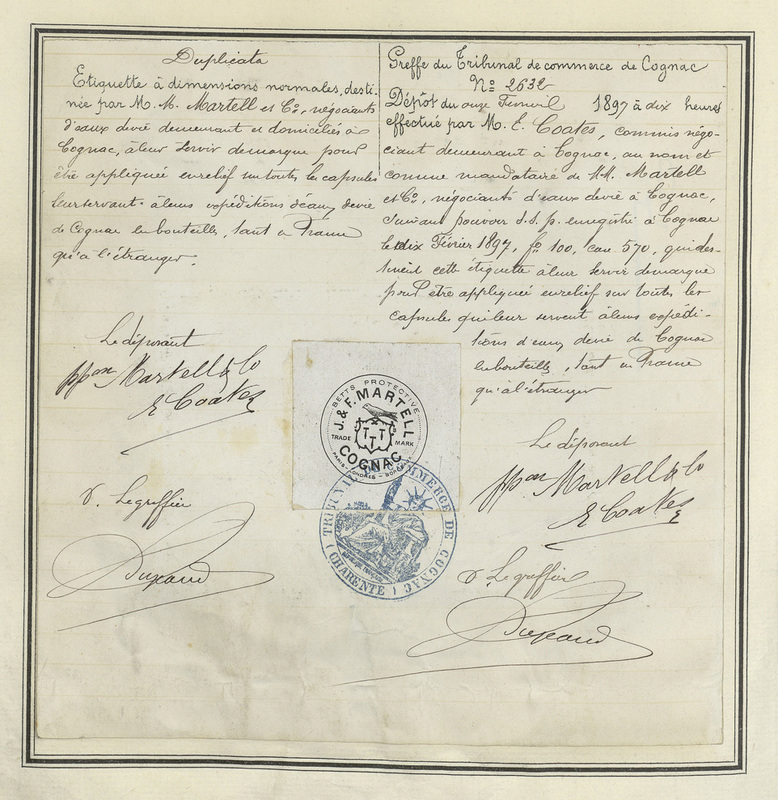 Duplicata
Etiquette à dimensions normales, desti-
née par M. M. Martell et Cº, négociants
d'eaux devie demeurant et domiciliés à
Cognac, àleur servir demarque pour
être appliquée enrelief sur toutes les capsules
leurservant àleurs expéditions d'eaux devie
de Cognac enbouteilles, tant en France
qu'à l'étranger.
Le déposant
ppon Martell & Co
E Coates
Le greffier
Greffe du Tribunal de commerce de Cognac
Nº 2632
Dépôt du onze Février 1897 à dix heures
effectué par M. E. Coates, commis négo-
ciant demeurant à Cognac, au nom et
comme mandataire de M.M. Martell
et Cº, négociants d'eaux devie à Cognac,
suivant pouvoir s.s.p. enregistré à Cognac
le dix Février 1897, fº 100, case 570, qui des-
tinent cette étiquette àleur servir demarque
pour être appliquée enrelief sur toutes les
capsules quileur servent àleurs expédi-
tions d'eaux devie de Cognac
enbouteilles, tant en France
qu'à l'étranger
Le déposant
ppon Martell & Co
E Coates
Le greffier
BETTS PROTECTIVE
J. & F. MARTELL
TRADE MARK
COGNAC
PARIS - LONDRES - BORDEAUX
TRIBUNAL DE COMMERCE DE COGNAC
(CHARENTE)